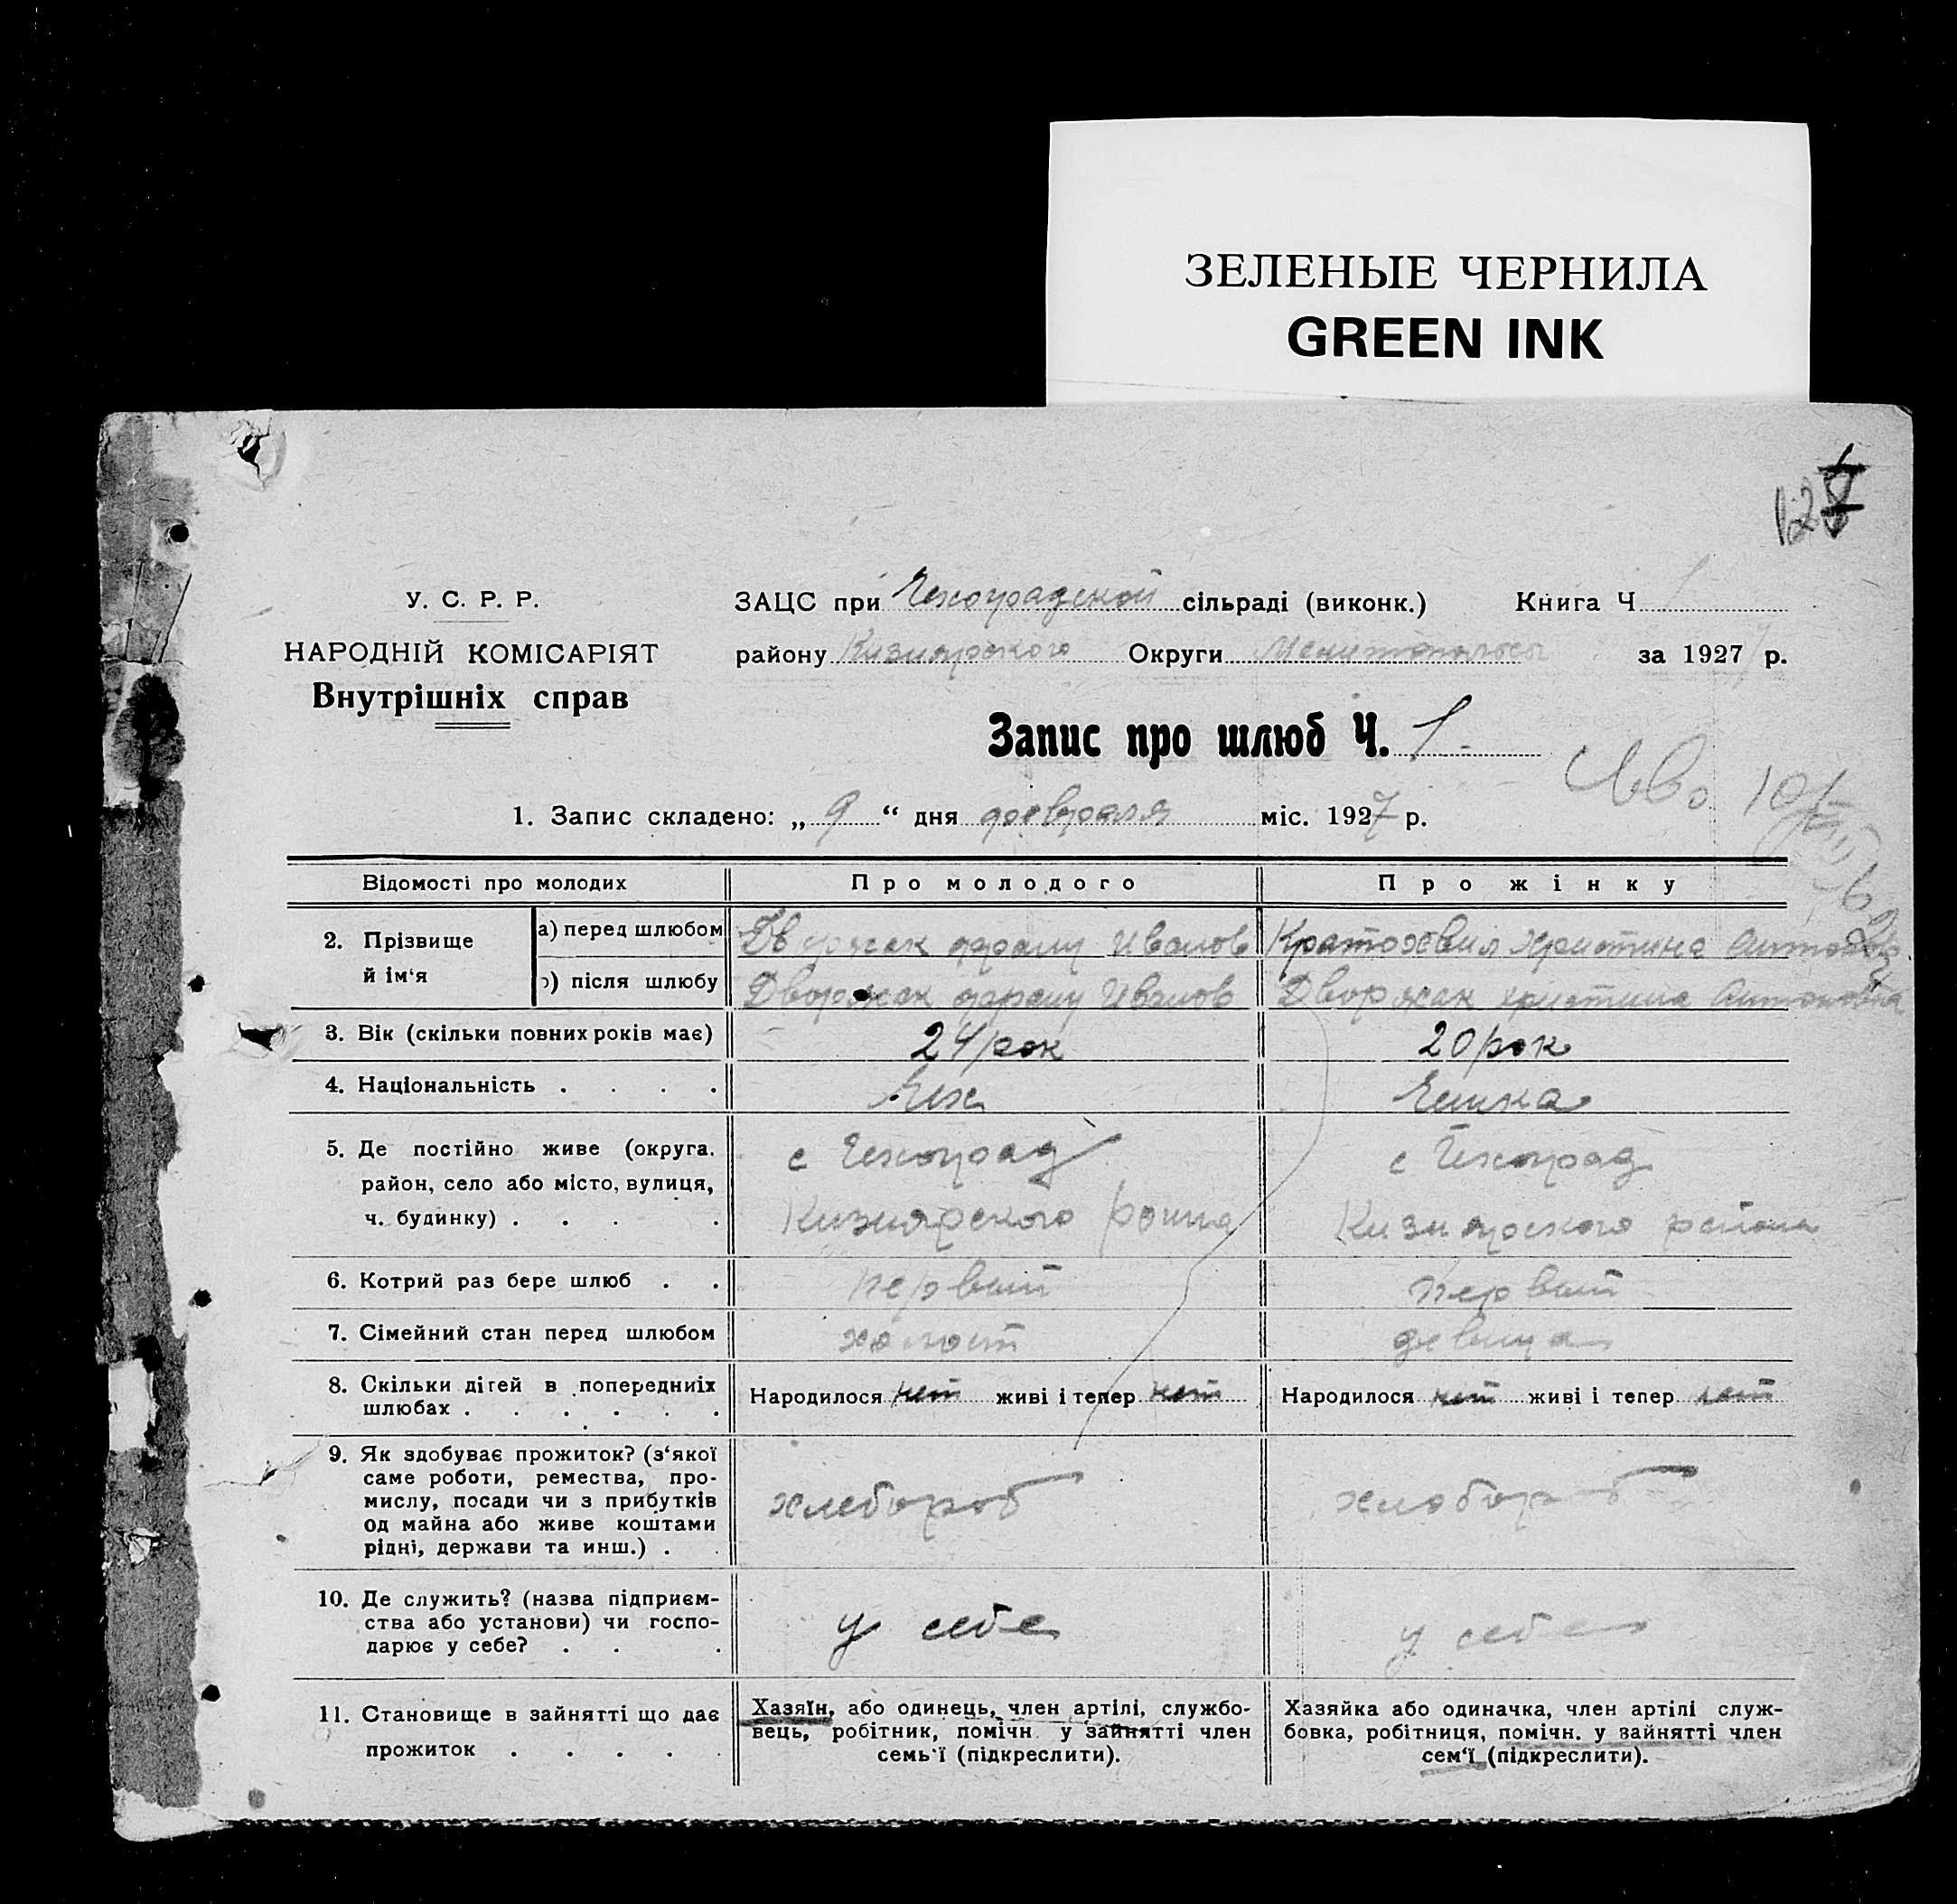 ЗЕЛЕНЫЕ ЧЕРНИЛА
GREEN INK
У. С. Р. Р.
НАРОДНІЙ КОМІСАРІЯТ
Внутрішніх справ
ЗАЦС при Чехоградской сільраді (виконк.) Книга Ч 1
району Кизиярского Округи за 1927 р.
Запис про шлюб Ч. 1
1. Запис складено: „ 9 “ дня февраля міс. 1927 р.
Відомості про молодих Про молодого Про жінку
2. Прізвище й ім‘я
а) перед шлюбом Дворжак Франц Иванов Кратохвил Христина
б) після шлюбу Дворжак Франц Иванов Дворжак Христина Антоновна
3. Вік (скільки повних років має) 24 рок 20 рок
4. Національність . . . . Чех Чешка
5. Де постійно живе (округа. с Чехоград с Чехоград
район, село або місто, вулиця,
ч. будинку) . . . . Кизиярского роина Кизиярского района
6. Котрий раз бере шлюб . . первый первый
7. Сімейний стан перед шлюбом холост девица
8. Скільки дітей в попередниіх
шлюбах . . . . . . Народилося нет живі і тепер нет Народилося нет живі і тепер нет
9. Як здобуває прожиток? (з‘якої
саме роботи, ремества, про-
мислу, посади чи з прибутків
од майна або живе коштами
рідні, держави та инш.) . . хлебороб хлебороб
10. Де служить? (назва підприєм-
ства або установи) чи госпо-
дарює у себе? . . . у себе у себе
11. Становище в зайнятті що дає
прожиток . . . . .
Хазяїн, або одинець, член артілі, службо-
вець, робітник, помічн у зайнятті член
семь‘ї (підкреслити).
Хазяйка або одиначка, член артілі служ-
бовка, робітниця, помічн. у зайнятті член
сем‘ї (підкреслити).